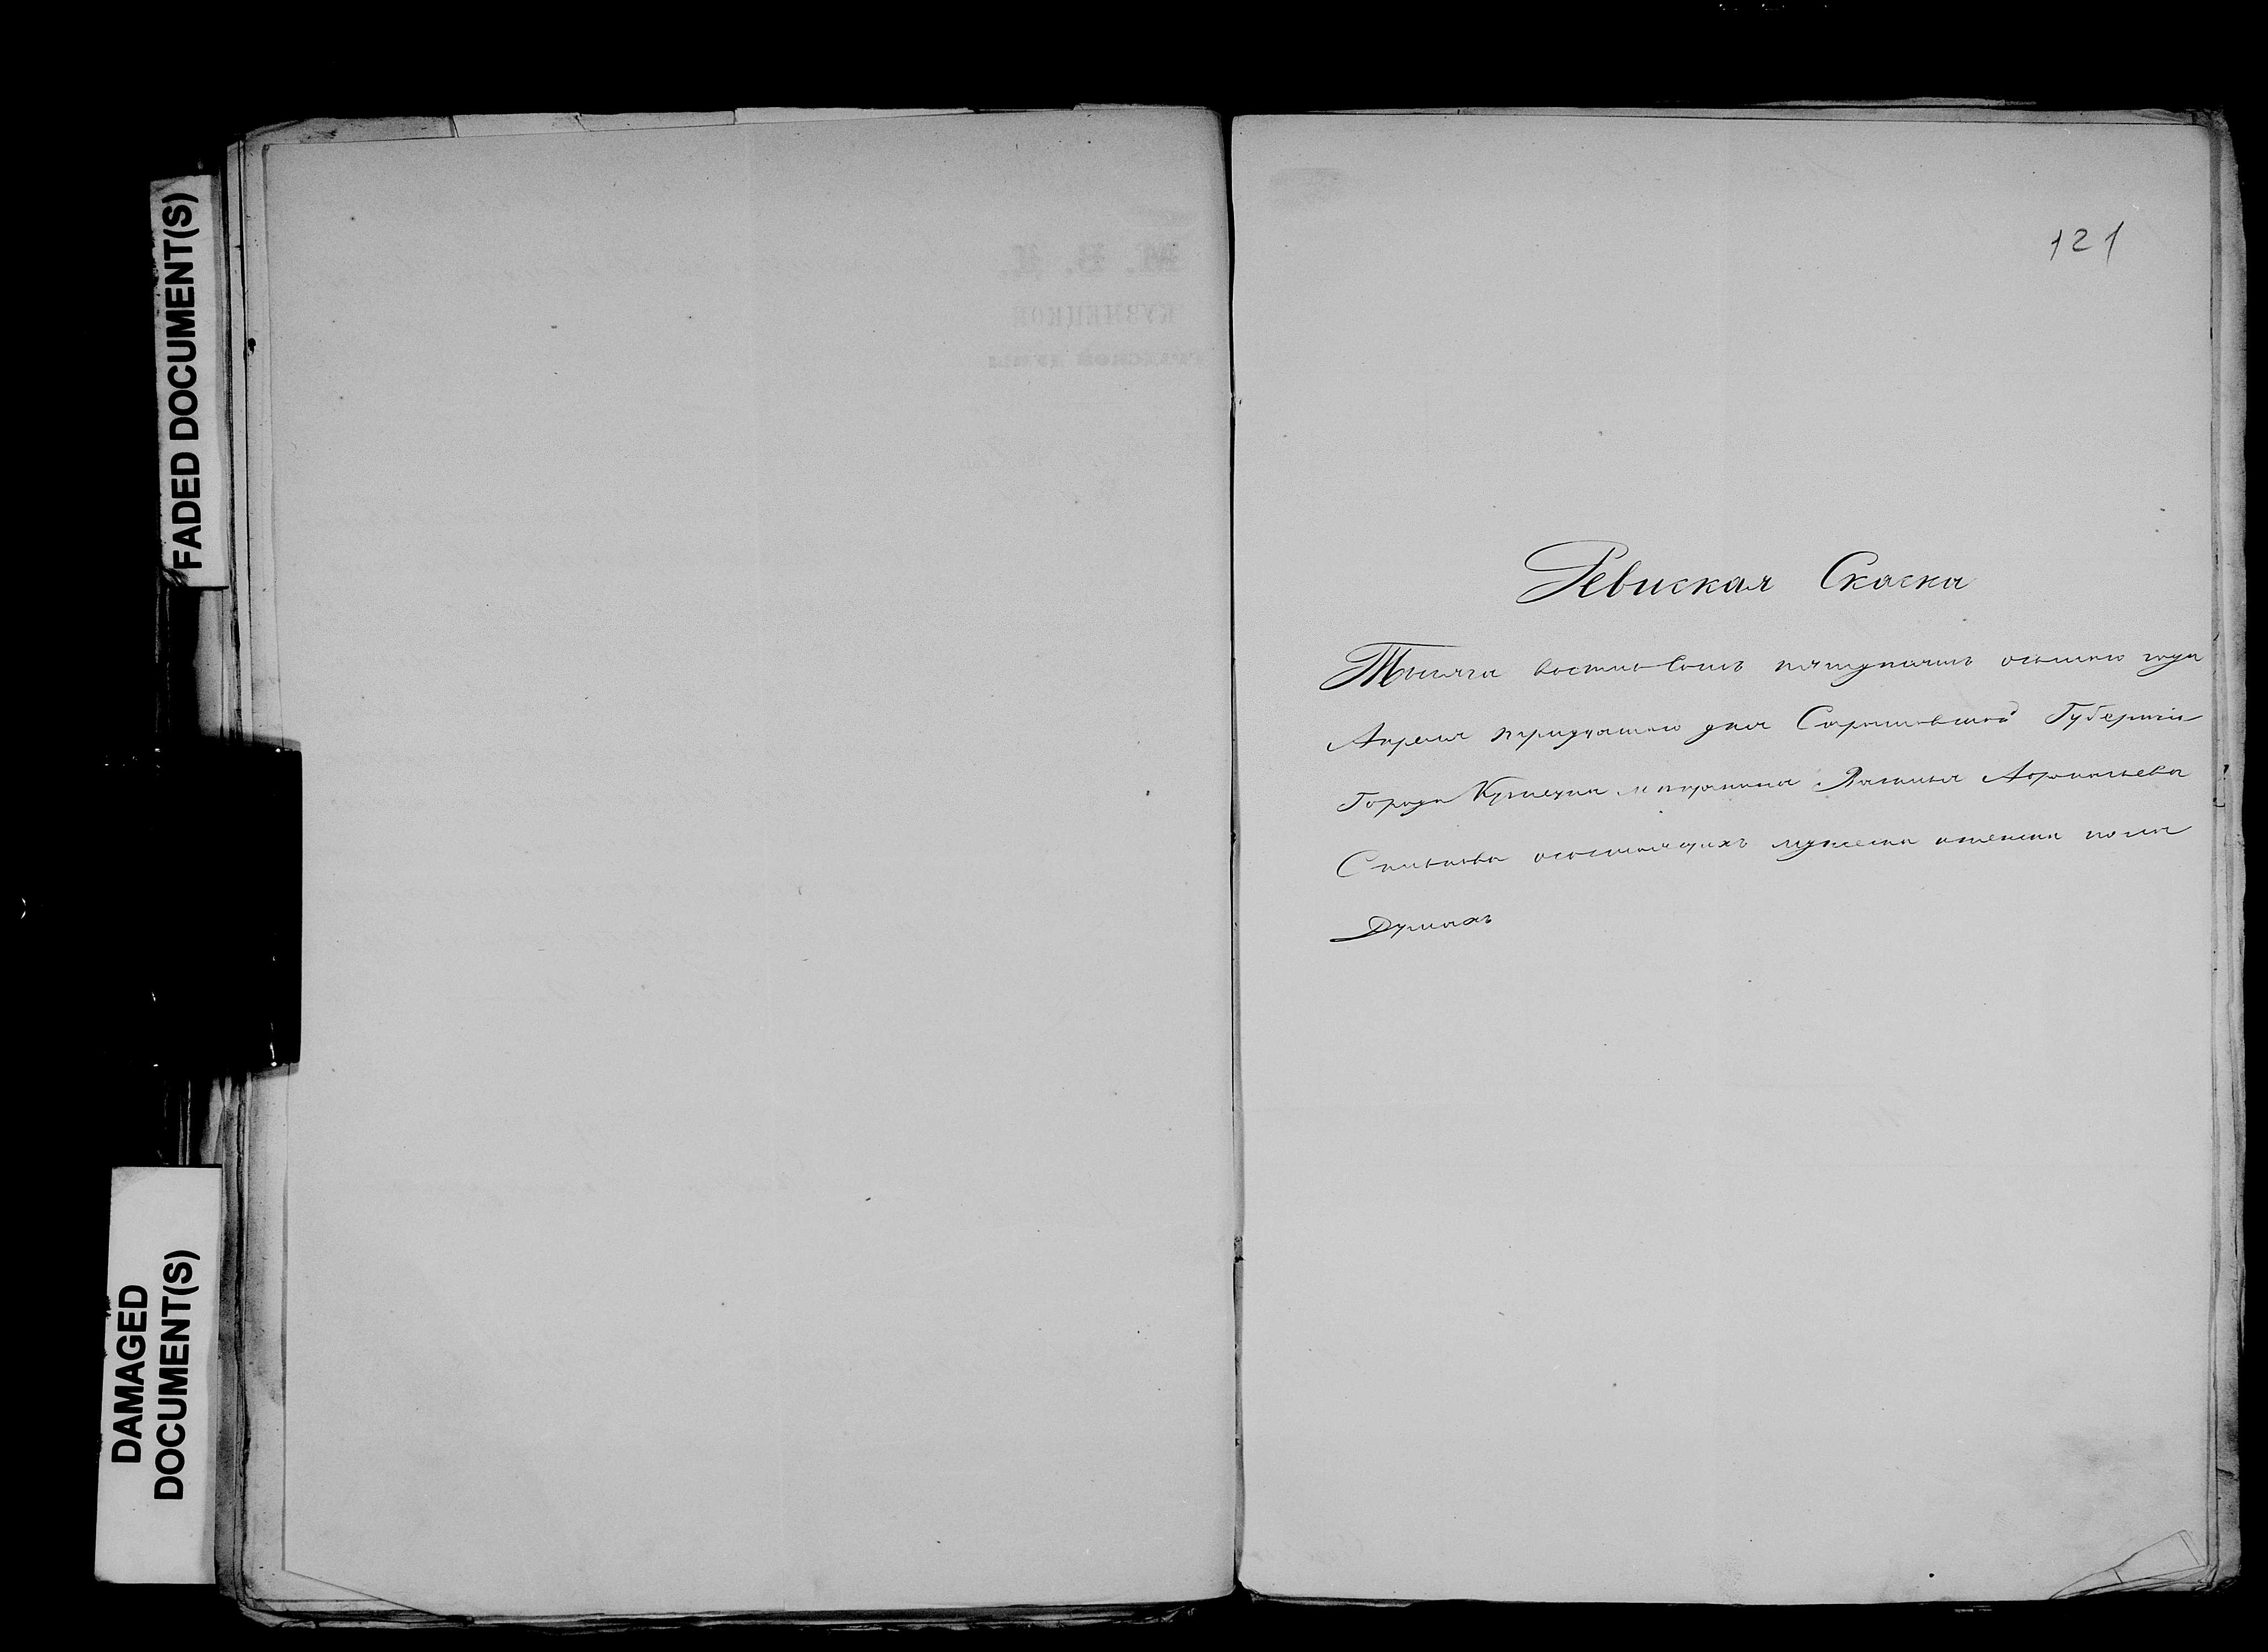 FADED DOCUMENT(S)
DAMAGED
DOCUMENT(S)
М. В. Д.
КУЗНЕЦКОЙ
ГРАДСКОЙ ДУМЫ
121
Ревиская Скаска
Тысяча восмисотъ пятдесятъ осьмаго года
Апреля тридцатаго дня Саратовской Губернии
Города Кузнецка мещанина Василья
осостоящихъ мужеска иженска пола
Душахъ